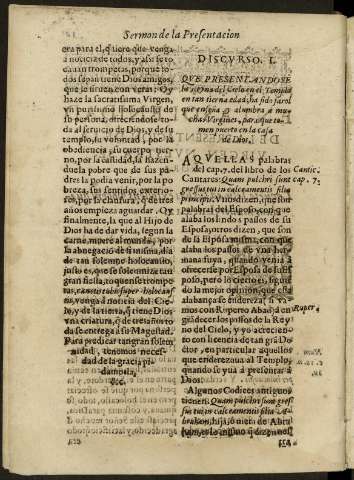 Sermon de la Presentacion
era para el, q̃ tiere que venga
à noticia de todos, y assi se to
can trompetas, porque to-
dos sepan tiene Dios amigos,
que le siruen con veras: Oy
haze la sacratissima Virgen,
vn purissimo holocausto de
su persona, ofreciendose to-
da al seruicio de Dios, y de su
templo, su voluntad, por la
obediencia, su cuerpo tier-
no, por la castidad, la hazen-
por la
pobreza, sus sentidos exterio-
res, por la clausura, q̃ de tres
años empieça aguardar. Oy
finalmente, la que al Hijo de
Dios ha de dar vida, segun la
carne, muere al mundo, por
la abnegacion de si misma, dia
de tan solemne holocausto,
justo es, que se solemniza tan
gran fiesta, toquense trompe-
tas,
y venga à noticia del Cie-
lo, y de la tierra, q̃ tiene Dios
vna criatura, q̃ de tres años to
da se entrega à su Magestad.
Para predicar tan gran solem
nidad, tenemos neces-
dad de la gracia, pi-
damosla,
&c.
DISCVRSO. I.
QVE PRESENTANDOSE
la Reyna del Cielo en el Templo
en tan tierna edad, ha sido farol
que enseña, y alumbra à mu-
chas Virgines, para que to-
men puerto en la casa
de Dios.
AQVELLAS palabras
del cap. 7. del libro de los
Cantares: Quam pulchri sunt
gressus tui in calceamentis filia
principis. Vnos dizen, que son
palabras del Esposo, con que
alaba los lindos passos de su
Esposa, otros dizen, que son
de la Esposa misma, con que
alaba los passos de vna her-
mana suya, quando venia à
ofrecerse por Esposa de su Es
poso, pero lo cierto es, siguien
do la mejor opinion, que esta
alabança se endereza (si va-
mos con Ruperto Abad) à en
grãdecer los passos de la Rey
na del Cielo, y yo acrecien
to con licencia de tan grã Do
ctor, en particular aquellos
que endereçaua al Templo,
quando se yua à presentar à
Dios.
Algunos Codices antiguos
tienen: Quam pulchri sunt gres
sus tui in calceamentis filia
Cantic.
cap. 7.
Ruper